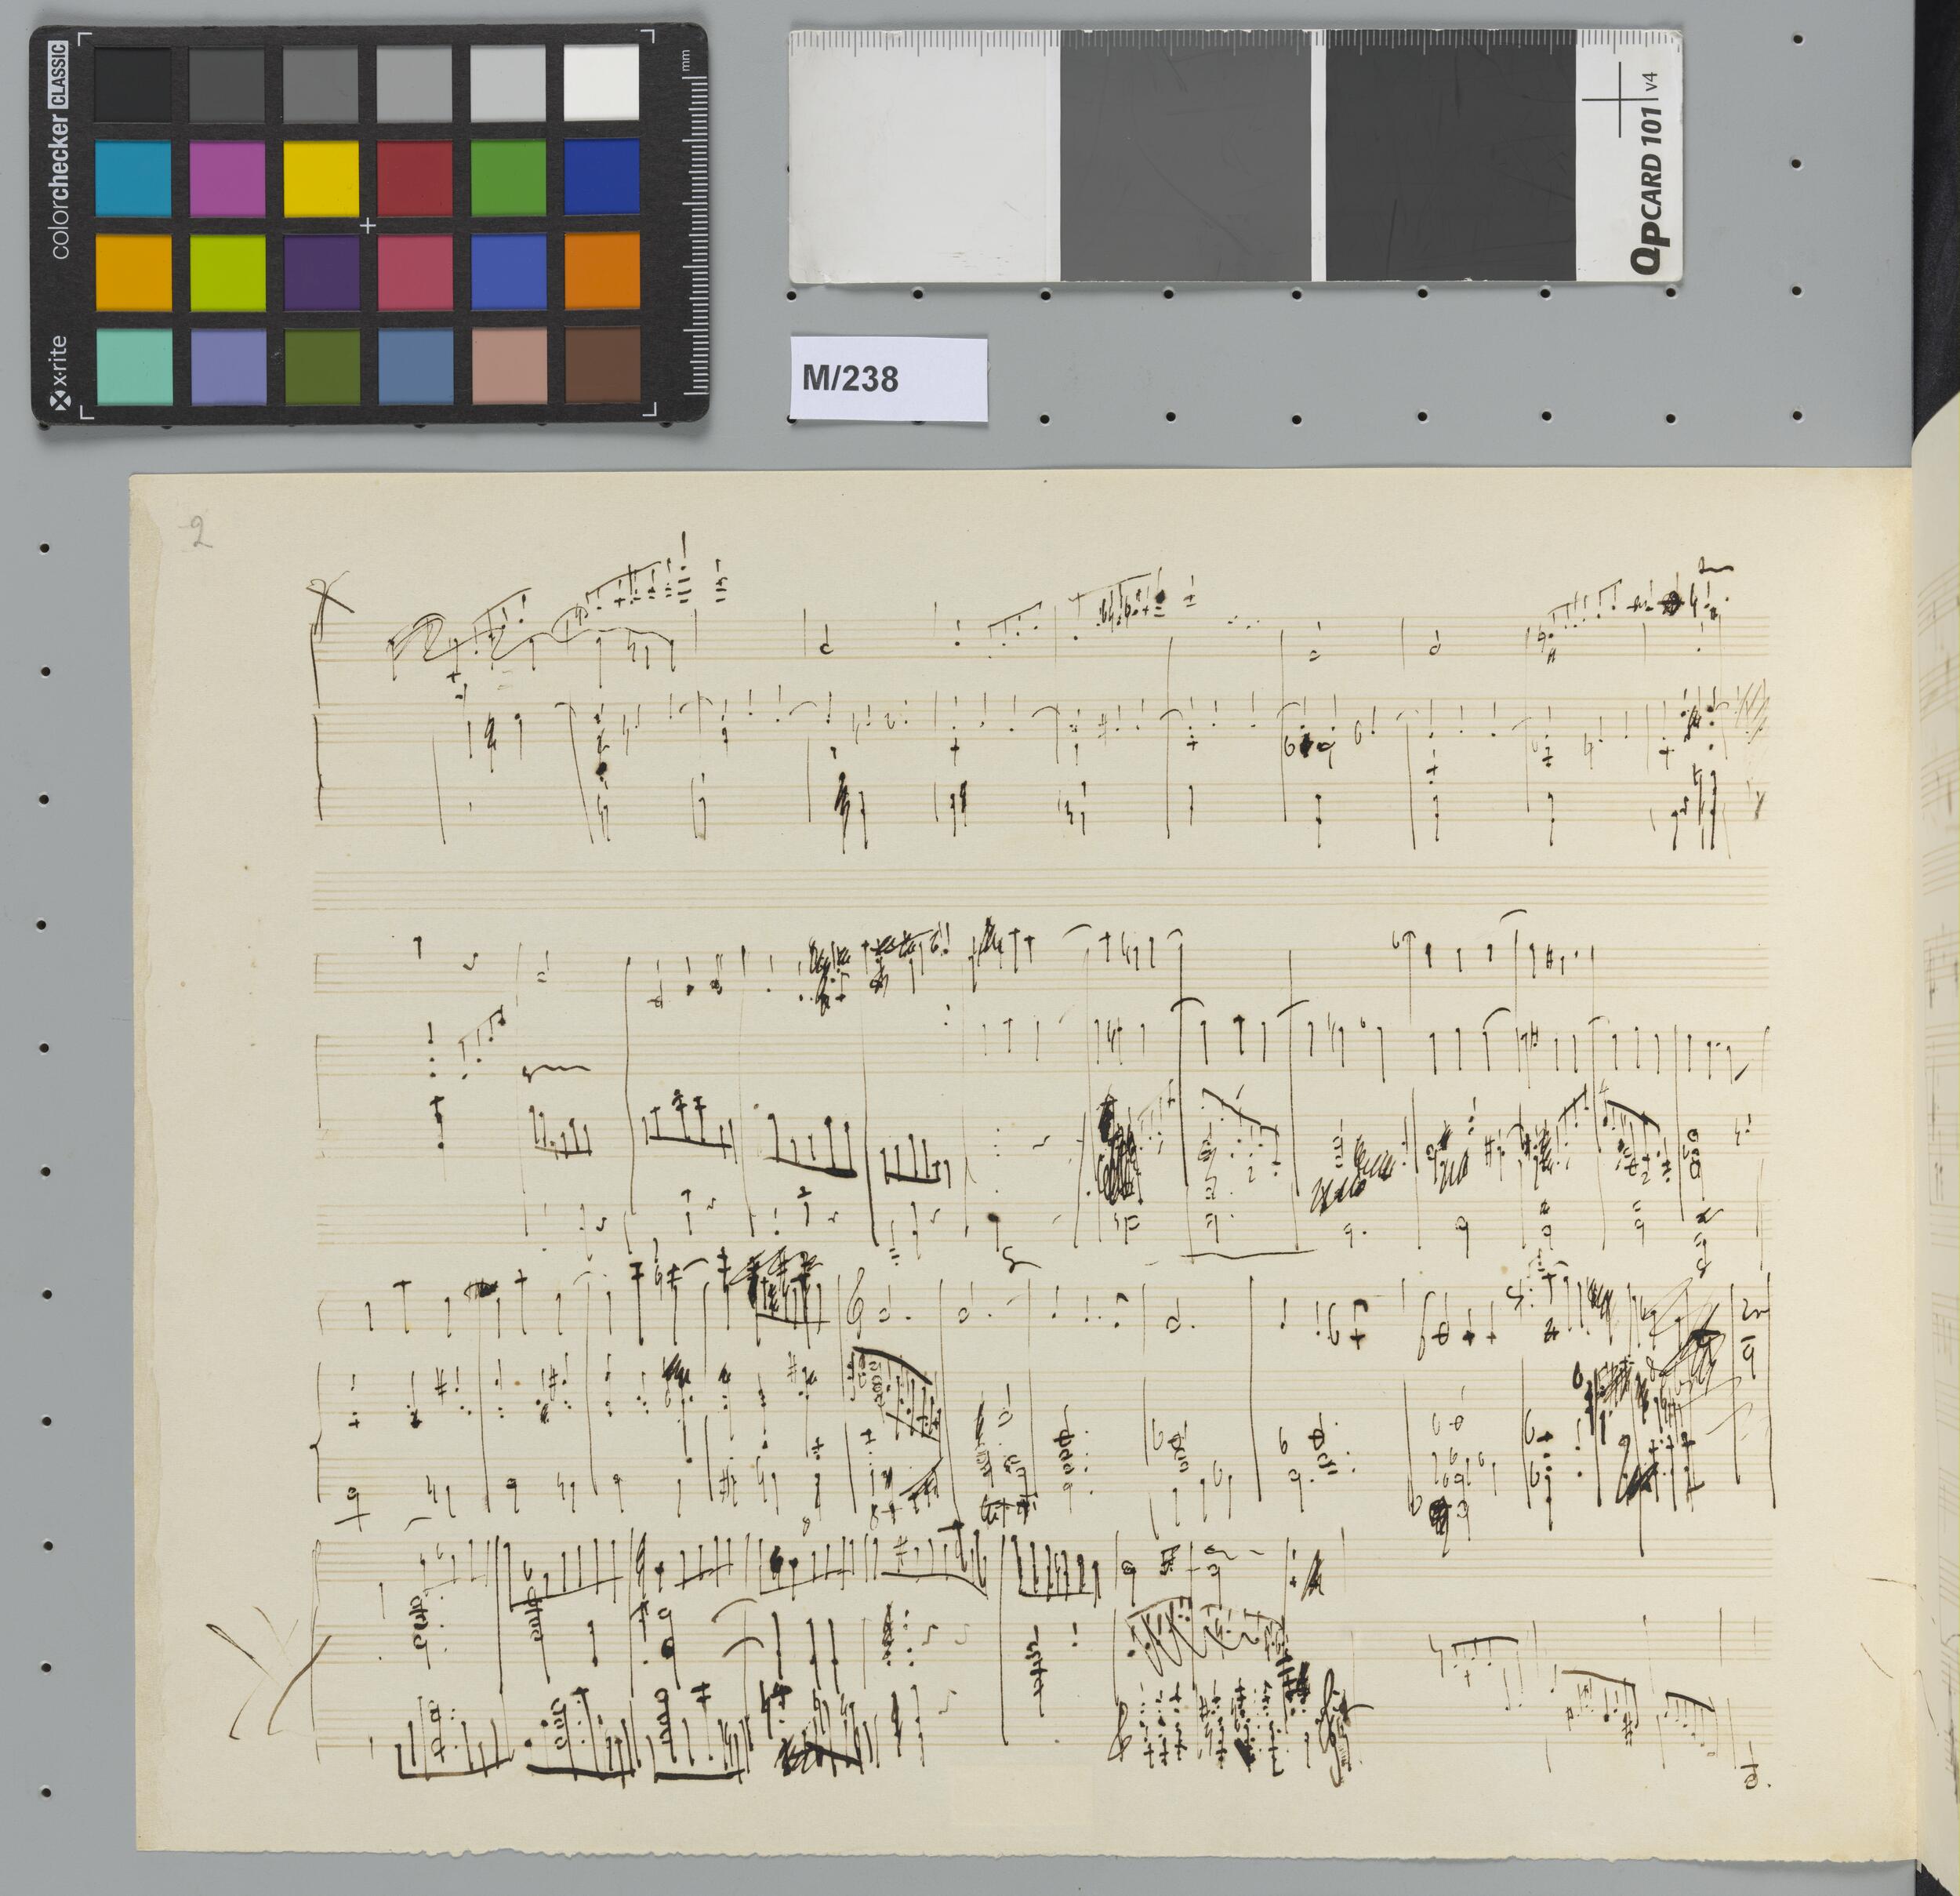 colorchecker CLASSIC
x-rite
mm
QPCARD 101 v4
M/238
2